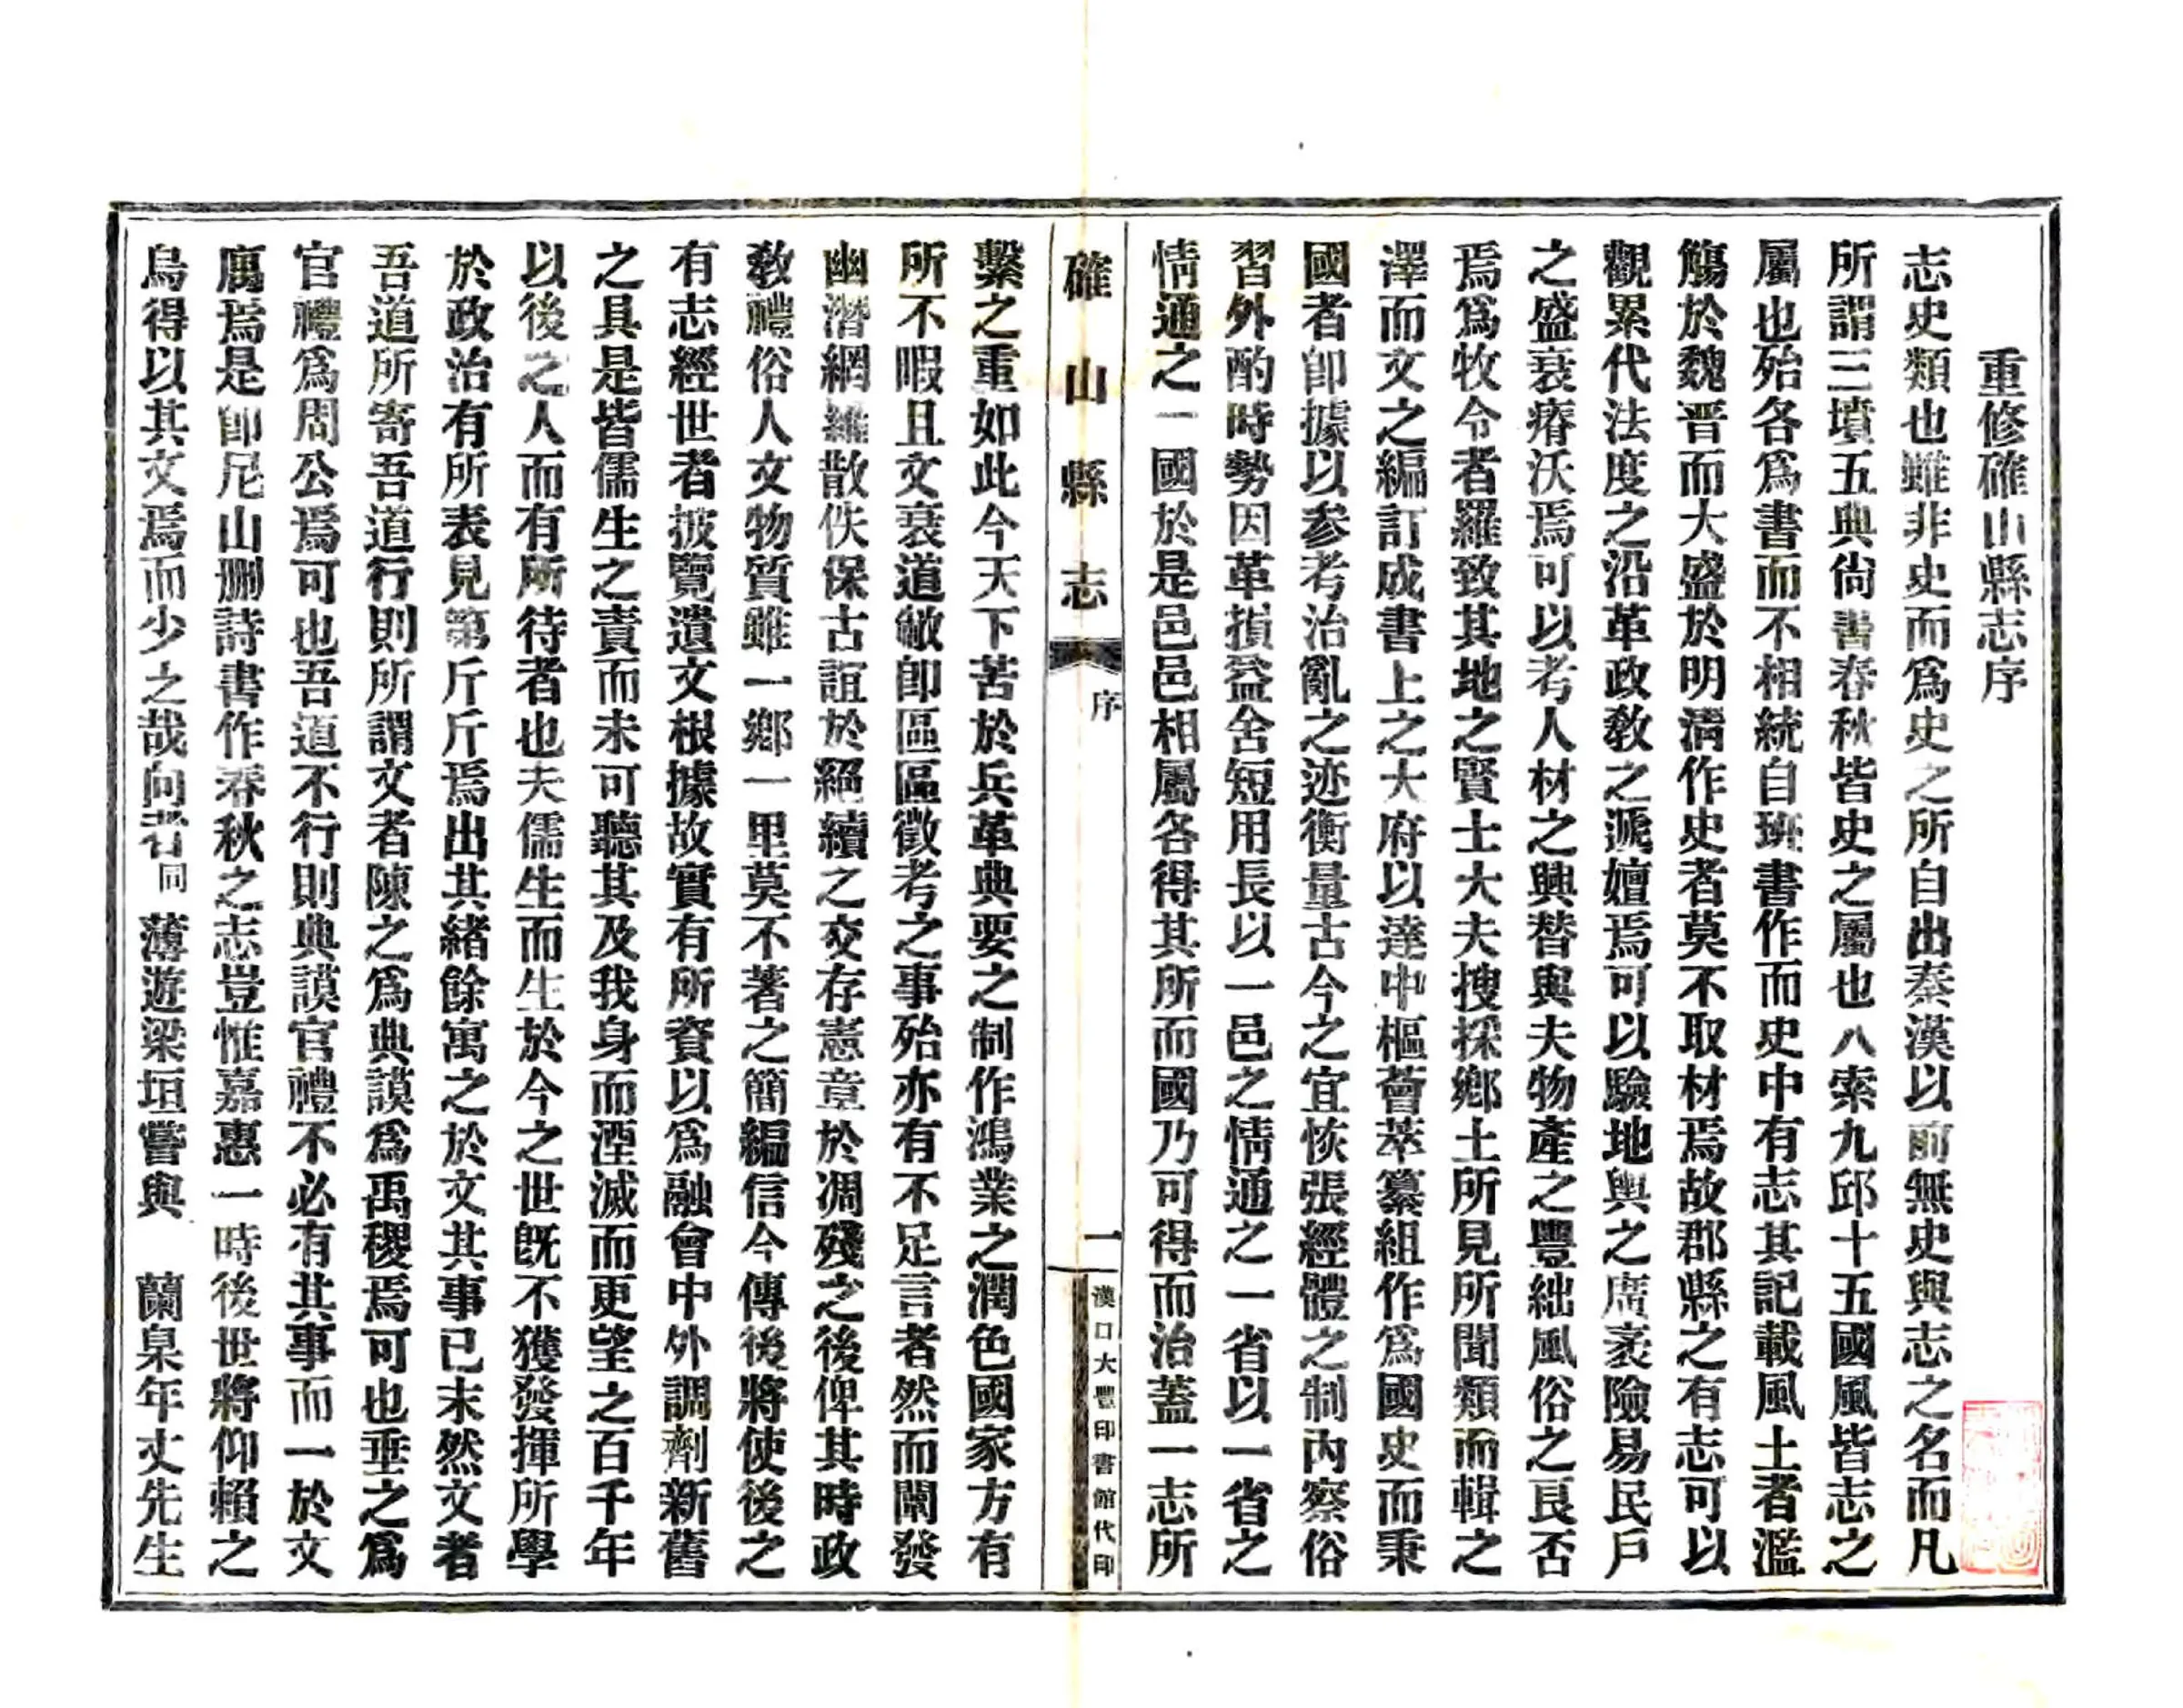 重修確山縣志序
志史類也雖非史而爲史之所自出秦漢以前無史與志之名而凡
所謂三墳五典尙書春秋皆史之屬也八索九邱十五國風皆志之
屬也殆各爲書而不相統自班書作而史中有志其記載風土者濫
觴於魏晋而大盛於明淸作史者莫不取材焉故郡縣之有志可以
觀累代法度之沿革政敎之遞嬗焉可以驗地輿之廣袤險易民戶
之盛衰瘠沃焉可以考人材之興替與夫物產之豐絀風俗之良否
焉爲牧令者羅致其地之賢士大夫搜採鄉土所見所聞類而輯之
澤而文之編訂成書上之大府以達中樞薈萃纂組作爲國史而秉
國者卽據以參考治亂之迹衡量古今之宜恢張經體之制內察俗
習外酌時勢因革損益舍短用長以一邑之情通之一省以一省之
情通之一國於是邑邑相屬各得其所而國乃可得而治蓋一志所
確山縣志
序
一
漢口大豐印書館代印
繫之重如此今天下苦於兵革典要之制作鴻業之潤色國家方有
所不暇且文衰道敝卽區區徵考之事殆亦有不足言者然而闡發
幽潛網羅散佚保古誼於絕續之交存憲章於凋殘之後俾其時政
敎禮俗人文物質雖一鄉一里莫不著之簡編信今傳後將使後之
有志經世者披覽遺文根據故實有所資以爲融會中外調劑新舊
之具是皆儒生之責而未可聽其及我身而湮滅而更望之百千年
以後之人而有所待者也夫儒生而生於今之世旣不獲發揮所學
於政治有所表見第斤斤焉出其緖餘寓之於文其事已末然文者
吾道所寄吾道行則所謂文者陳之爲典謨爲禹稷焉可也垂之爲
官禮爲周公焉可也吾道不行則典謨官禮不必有其事而一於文
寓焉是卽尼山刪詩書作春秋之志豈惟嘉惠一時後世將仰賴之
烏得以其文焉而少之哉向者同薄遊梁垣嘗與 蘭泉年丈先生